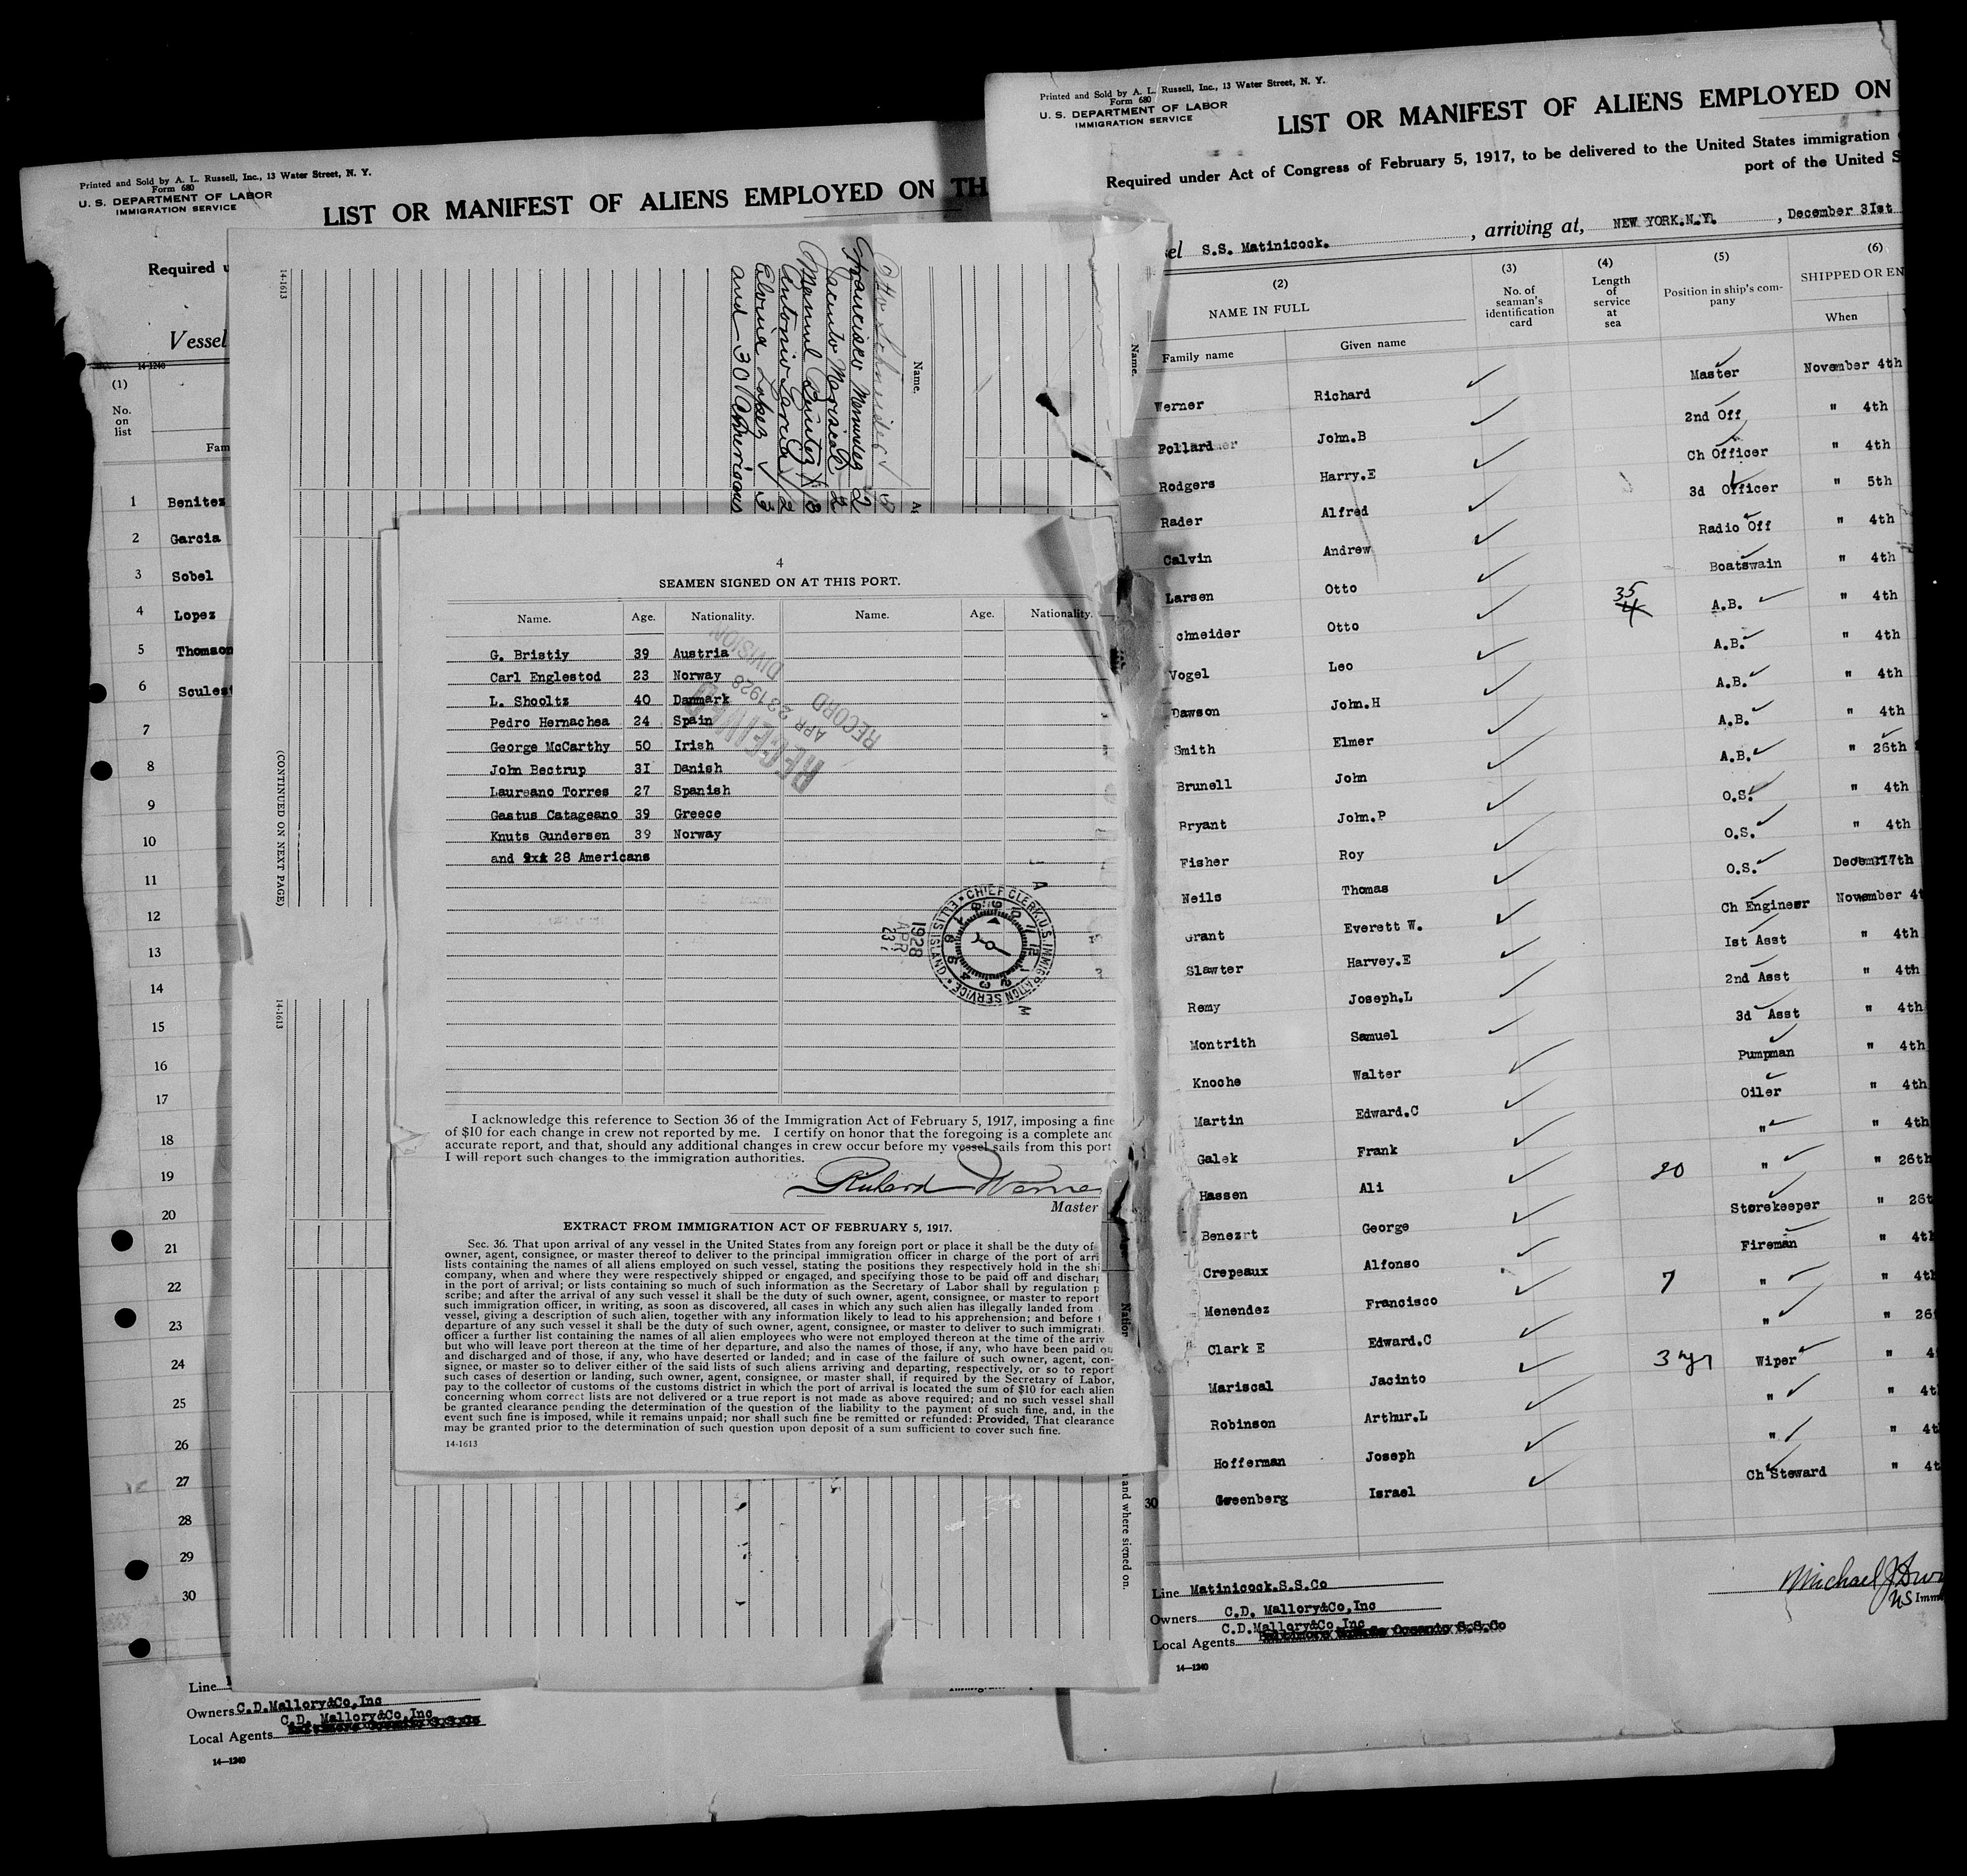 Printed and Sold by A. L. Russell, Inc., 13 Water Street, N. Y.
Form 680
U. S. DEPARTMENT OF LABOR
IMMIGRATION SERVICE
LIST OR MANIFEST OF ALIENS EMPLOYED ON TH
Required u
Vessel
14-1240
(1)
No.
on
list
Fam
1 Benitez
2 Garcia
3 Sobel
4 Lopez
5 Thomson
6 Soules
7
8
9
10
11
12
13
14
15
16
17
18
19
20
21
22
23
24
25
26
27
28
29
30
Line
Owners C.D.Mallory&Co,Inc
C.D. Mallory&Co,Inc
Local Agents
14-1240
14-1613
(CONTINUED ON NEXT PAGE)
14-1613
Name.
Otto Schneider
Francisco Menendez 2
Jacinto Mariscal 2
Manuel Benitez
Antonio Garcia 2
Lopez 3
and 30 Americans
Name.
and where signed on.
4
SEAMEN SIGNED ON AT THIS PORT.
Name. Age. Nationality. Name. Age. Nationality.
G. Bristiy 39 Austria
Carl Englestod 23 Norway
L. Shooltz 40 Danmark
Pedro Hernachea 24 Spain
George McCarthy 50 Irish
John Bectrup 3I Danish
Laureano Torres 27 Spanish
Gastus Catageano 39 Greece
Knuts Gundersen 39 Norway
and 28 Americans
RECEIVED
APR 23 1928
RECORD
DIVISION
CHIEF CLERK, U.S. IMMIGRATION SERVICE
ELLIS ISLAND
1928
APR
23
I acknowledge this reference to Section 36 of the Immigration Act of February 5, 1917, imposing a fine
of $10 for each change in crew not reported by me. I certify on honor that the foregoing is a complete and
accurate report, and that, should any additional changes in crew occur before my vessel sails from this port
I will report such changes to the immigration authorities.
Richard Werne
Master
EXTRACT FROM IMMIGRATION ACT OF FEBRUARY 5, 1917.
Sec. 36. That upon arrival of any vessel in the United States from any foreign port or place it shall be the duty of
owner, agent, consignee, or master thereof to deliver to the principal immigration officer in charge of the port of arri
lists containing the names of all aliens employed on such vessel, stating the positions they respectively hold in the shi
company, when and where they were respectively shipped or engaged, and specifying those to be paid off and discharg
in the port of arrival; or lists containing so much of such information as the Secretary of Labor shall by regulation p
scribe; and after the arrival of any such vessel it shall be the duty of such owner, agent, consignee, or master to report
such immigration officer, in writing, as soon as discovered, all cases in which any such alien has illegally landed from
vessel, giving a description of such alien, together with any information likely to lead to his apprehension; and before t
departure of any such vessel it shall be the duty of such owner, agent, consignee, or master to deliver to such immigrati
officer a further list containing the names of all alien employees who were not employed thereon at the time of the arriv
but who will leave port thereon at the time of her departure, and also the names of those, if any, who have been paid o
and discharged and of those, if any, who have deserted or landed; and in case of the failure of such owner, agent, con-
signee, or master so to deliver either of the said lists of such aliens arriving and departing, respectively, or so to report
such cases of desertion or landing, such owner, agent, consignee, or master shall, if required by the Secretary of Labor,
pay to the collector of customs of the customs district in which the port of arrival is located the sum of $10 for each alien
concerning whom correct lists are not delivered or a true report is not made as above required; and no such vessel shall
be granted clearance pending the determination of the question of the liability to the payment of such fine, and, in the
event such fine is imposed, while it remains unpaid; nor shall such fine be remitted or refunded: Provided, That clearance
may be granted prior to the determination of such question upon deposit of a sum sufficient to cover such fine.
14-1613
Printed and Sold by A. L. Russell, Inc., 13 Water Street, N. Y.
Form 680
U. S. DEPARTMENT OF LABOR
IMMIGRATION SERVICE
LIST OR MANIFEST OF ALIENS EMPLOYED ON
Required under Act of Congress of February 5, 1917, to be delivered to the United States immigration
port of the United S
sel S.S. Matinicock. , arriving at, NEW YORK.N.Y. , December 3Ist
(2) (3) (4) (5) (6)
NAME IN FULL No. of seaman's identification card Length of service at sea Position in ship's com-pany SHIPPED OR EN
Family name Given name When
Werner Richard Master November 4th
Pollard John.B 2nd Off " 4th
Rodgers Harry.E Ch Officer " 4th
Rader Alfred 3d Officer " 5th
Calvin Andrew Radio Off " 4th
Larsen Otto Boatswain " 4th
chneider Otto 35 A.B. " 4th
Vogel Leo A.B. " 4th
Dawson John.H A.B. " 4th
Smith Elmer A.B. " 4th
Brunell John A.B. " 26th
Bryant John.P O.S. " 4th
Fisher Roy O.S. " 4th
Neils Thomas O.S. 17th
Grant Everett W. Ch Engineer November 4t
Slawter Harvey.E Ist Asst " 4th
Remy Joseph.L 2nd Asst " 4th
Montrith Samuel 3d Asst " 4th
Knoche Walter Pumpman " 4th
Martin Edward.C Oiler " 4th
Galek Frank " " 4th
Hassen Ali 20 " " 26th
Benezrt George Storekeeper " 26t
Crepeaux Alfonso Fireman " 4th
Menendez Francisco 7 " " 4th
Clark E Edward.C " " 26
Mariscal Jacinto 3 yr Wiper " 4
Robinson Arthur.L " " 4t
Hofferman Joseph " " 4t
30 Greenberg Israel Ch Steward " 4t
Line Matinicock.S.S.Co
Owners C.D. Mallory&Co,Inc
C.D.Mallory&Co,Inc
Local Agents
14-1240
Michael J.
US Imm